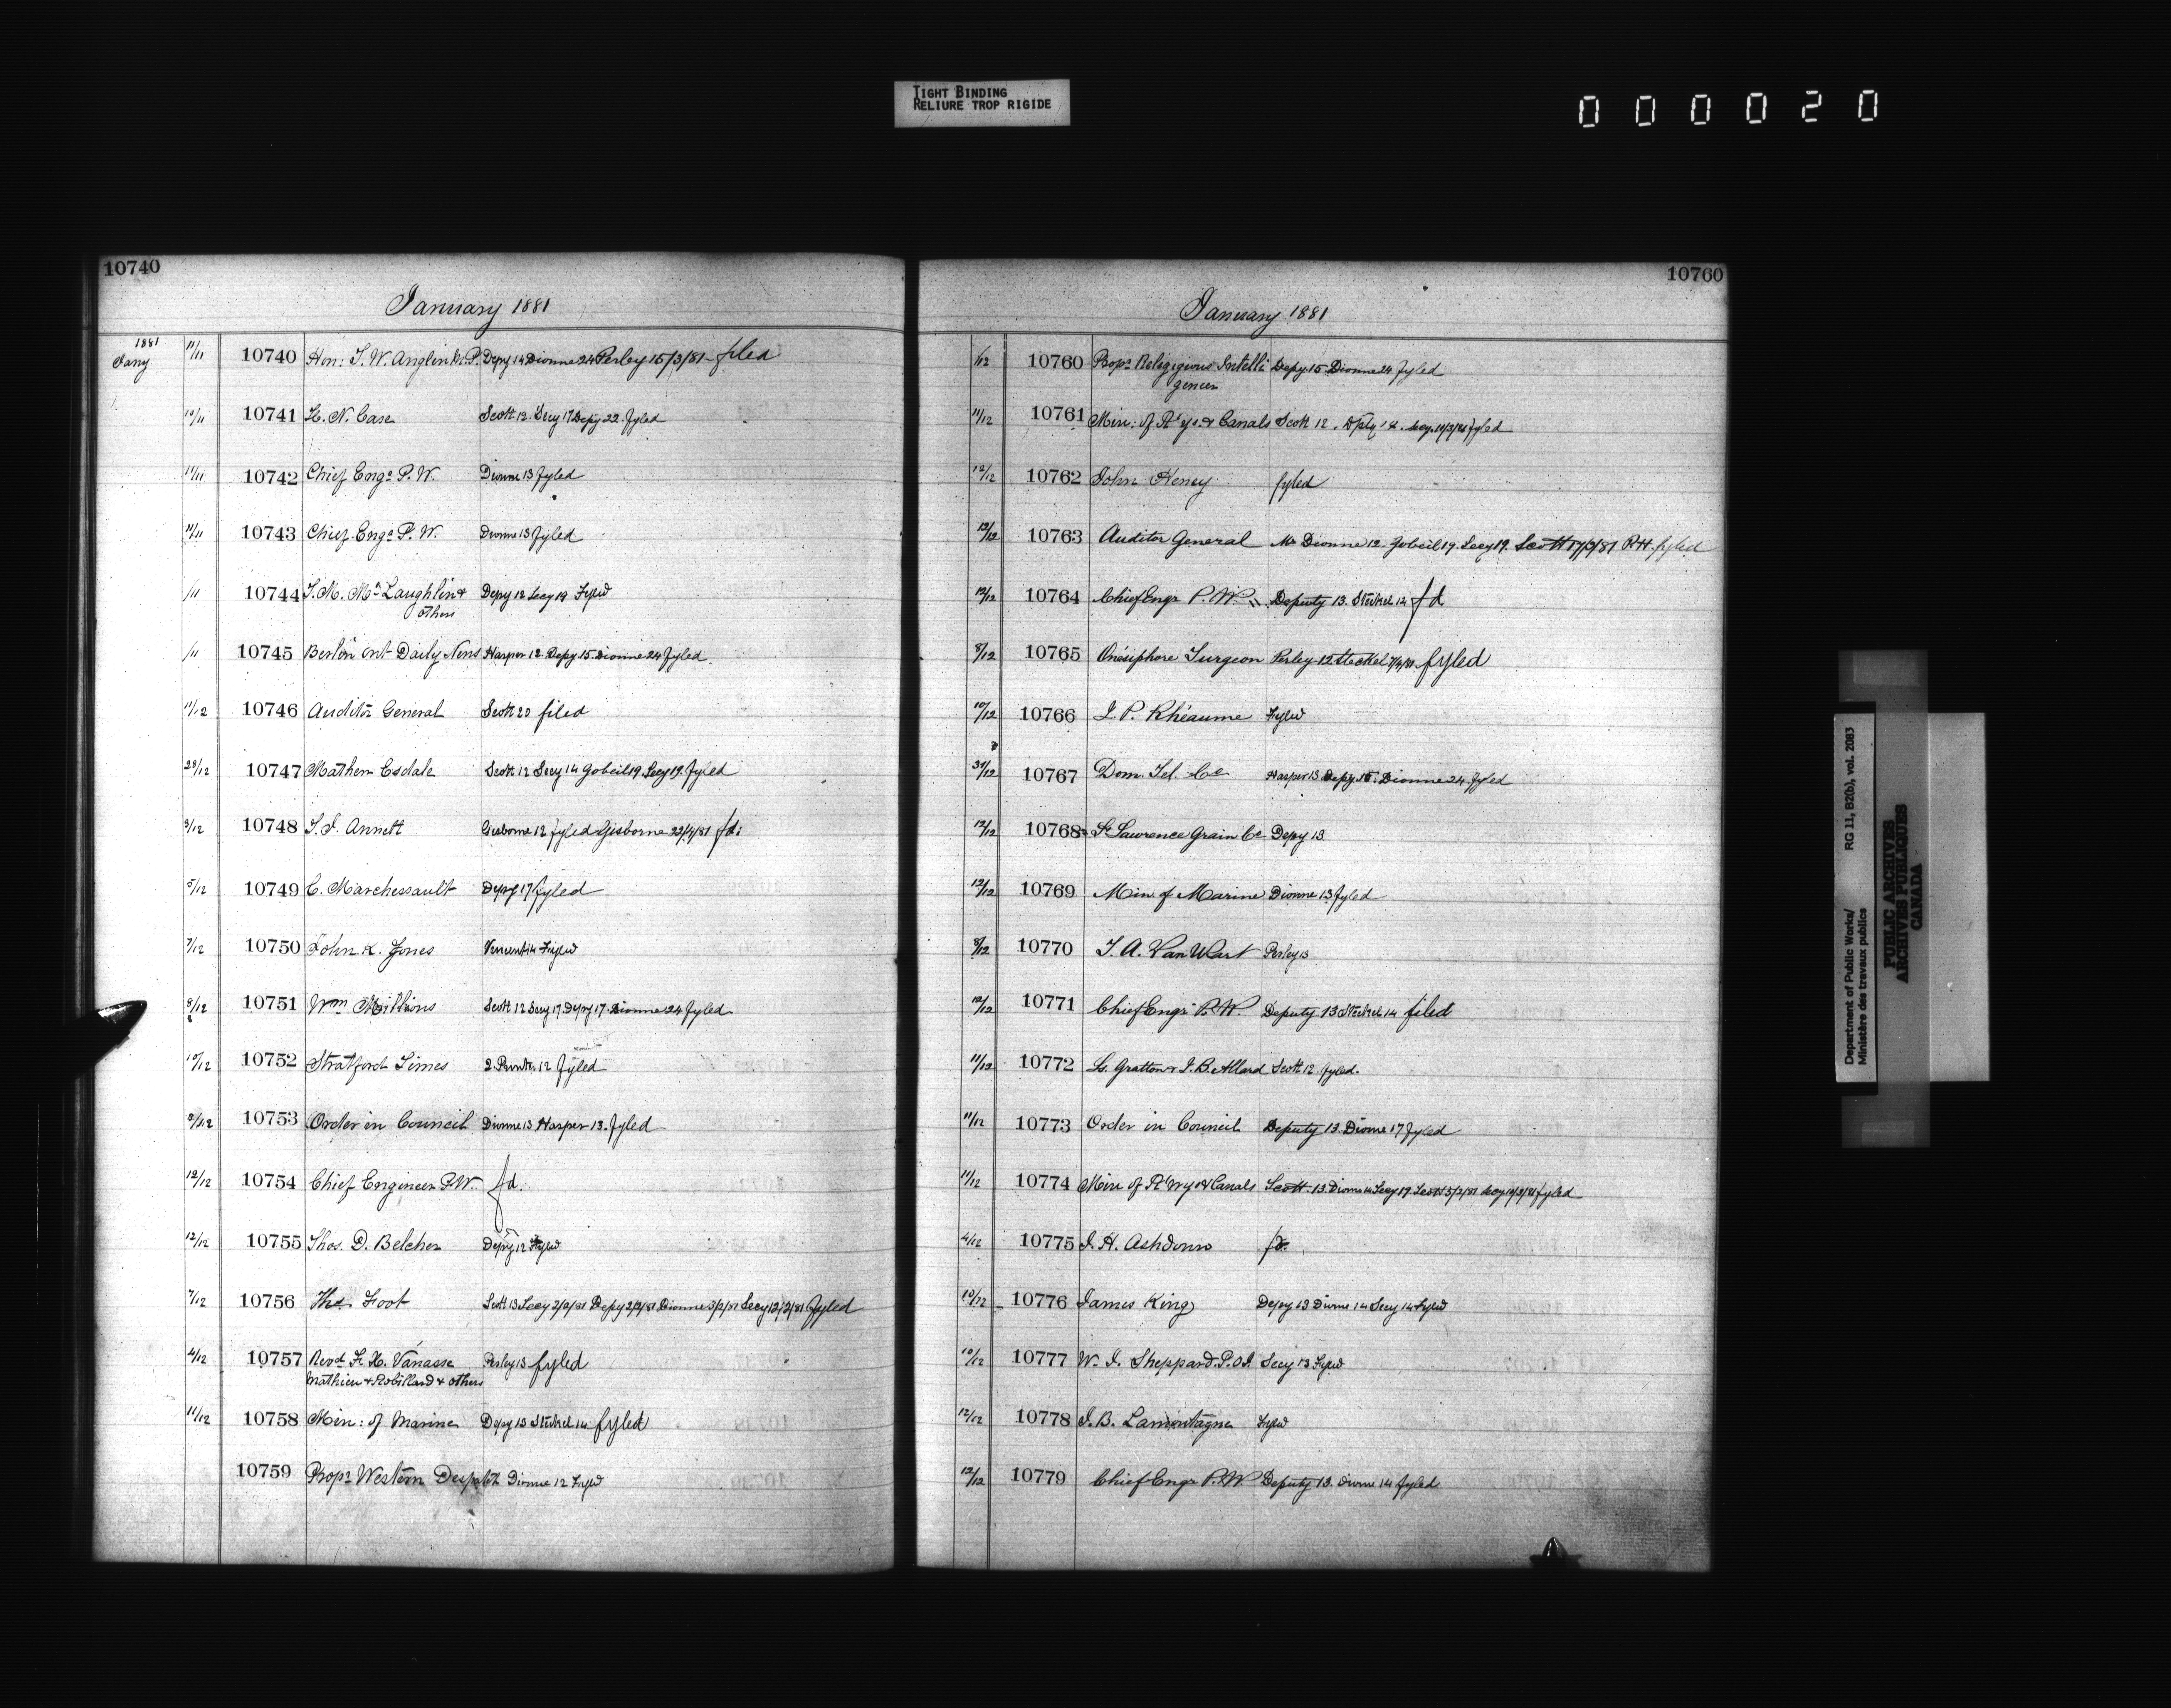 TIGHT BINDING
RELIURE TROP RIGIDE
000020
10740
January 1881
1881
Jany 11/11 10740 Hon: T. W. Anglin M.P. Depy 14 Dionne 24 Perley 15/3/81 - filed
10/11 10741 H. N. Case Scott 12. Secy 17 Depy 22. fyled
11/11 10742 Chief Engr P. W. Dionne 13 fyled
11/11 10743 Chief Engr P. W. Dionne 13 fyled
/11 10744 J. M. McLaughlin &
others Depy 12 Secy 19 Fyled
/11 10745 Berlin Ont Daily News Harper 12. Depy 15. Dionne 24 fyled
11/12 10746 Auditor General Scott 20 filed
28/12 10747 Mathew Esdale Scott 12 Secy 14 Gobeil 19 Secy 19. fyled
3/12 10748 T. J. Annett Gisborne 12 fyled Gisborne 22/4/81 fd:
5/12 10749 C. Marchessault Depy 17 fyled
7/12 10750 John K. Jones 14 Fyled
8/12 10751 Wm Scott 12 Secy 17. Depy 17. Dionne 24 fyled
10/12 10752 Stratford Times 12 fyled
8/12 10753 Order in Council Dionne 13 Harper 13. fyled
12/12 10754 Chief Engineer P.W. fd.
12/12 10755 Thos. D. Belcher Depy 12 Fyled
7/12 10756 Thos. Foot Scott 13 Secy 2/2/81 Depy 2/2/81 Dionne 3/2/81 Secy 12/2/81 fyled
4/12 10757 Revd F. X. Vanasse Perley 13 fyled
Mathieu & Robillard & others
11/12 10758 Min: of Marine Depy 13 Steckel 14 fyled
10759 Propr Western Despatch Dionne 12 Fyled
10760
January 1881
/12 10760 Propr Religigious Intelli Depy 15. Dionne 24 fyled
gencer
11/12 10761 Min: of R'ys. & Canals Scott 12. Dpty 18. Secy. 14/3/81 fyled
12/12 10762 John Heney fyled
12/12 10763 Auditor General Mr Dionne 12. Gobeil 19. Secy 19. Scott 17/3/81 R.H. fyled
12/12 10764 Chief Engr P. W. Deputy 13. Steckel 14 fd
8/12 10765 Onésiphore Turgeon Perley 12 Steckel fyled
10/12 10766 J. P. Rhéaume Fyled
31/12 10767 Dom. Tel. Co Harper 13 Depy 15. Dionne 24 fyled
12/12 10768 St Lawrence Grain Co Depy 13
12/12 10769 Min of Marine Dionne 13 fyled
8/12 10770 J. A. Van Wart Perley 13
12/12 10771 Chief Engr P. W. Deputy 13 Steckel 14 filed
11/12 10772 L. Gratton & J. B. Allard Scott 12. fyled.
11/12 10773 Order in Council Deputy 13 Dionne 17 fyled
11/12 10774 Min of R'wys & Canals Scott 13 Dionne 14 Secy 19. Scott 3/2/81 Secy 14/3/81 fyled
4/12 10775 J. H. Ashdown fd.
10/12 10776 James King Depy 13 Dionne 14 Secy 14 Fyled
10/12 10777 W. J. Sheppard. P.O.I. Secy 13 Fyled
12/12 10778 J. B. Lamontagne Fyled
12/12 10779 Chief Engr P.W. Deputy 13. Dionne 14 fyled
Department of Public Works/ RG 11, B2(b), vol. 2083
Ministère des travaux publics
PUBLIC ARCHIVES
ARCHIVES PUBLIQUES
CANADA